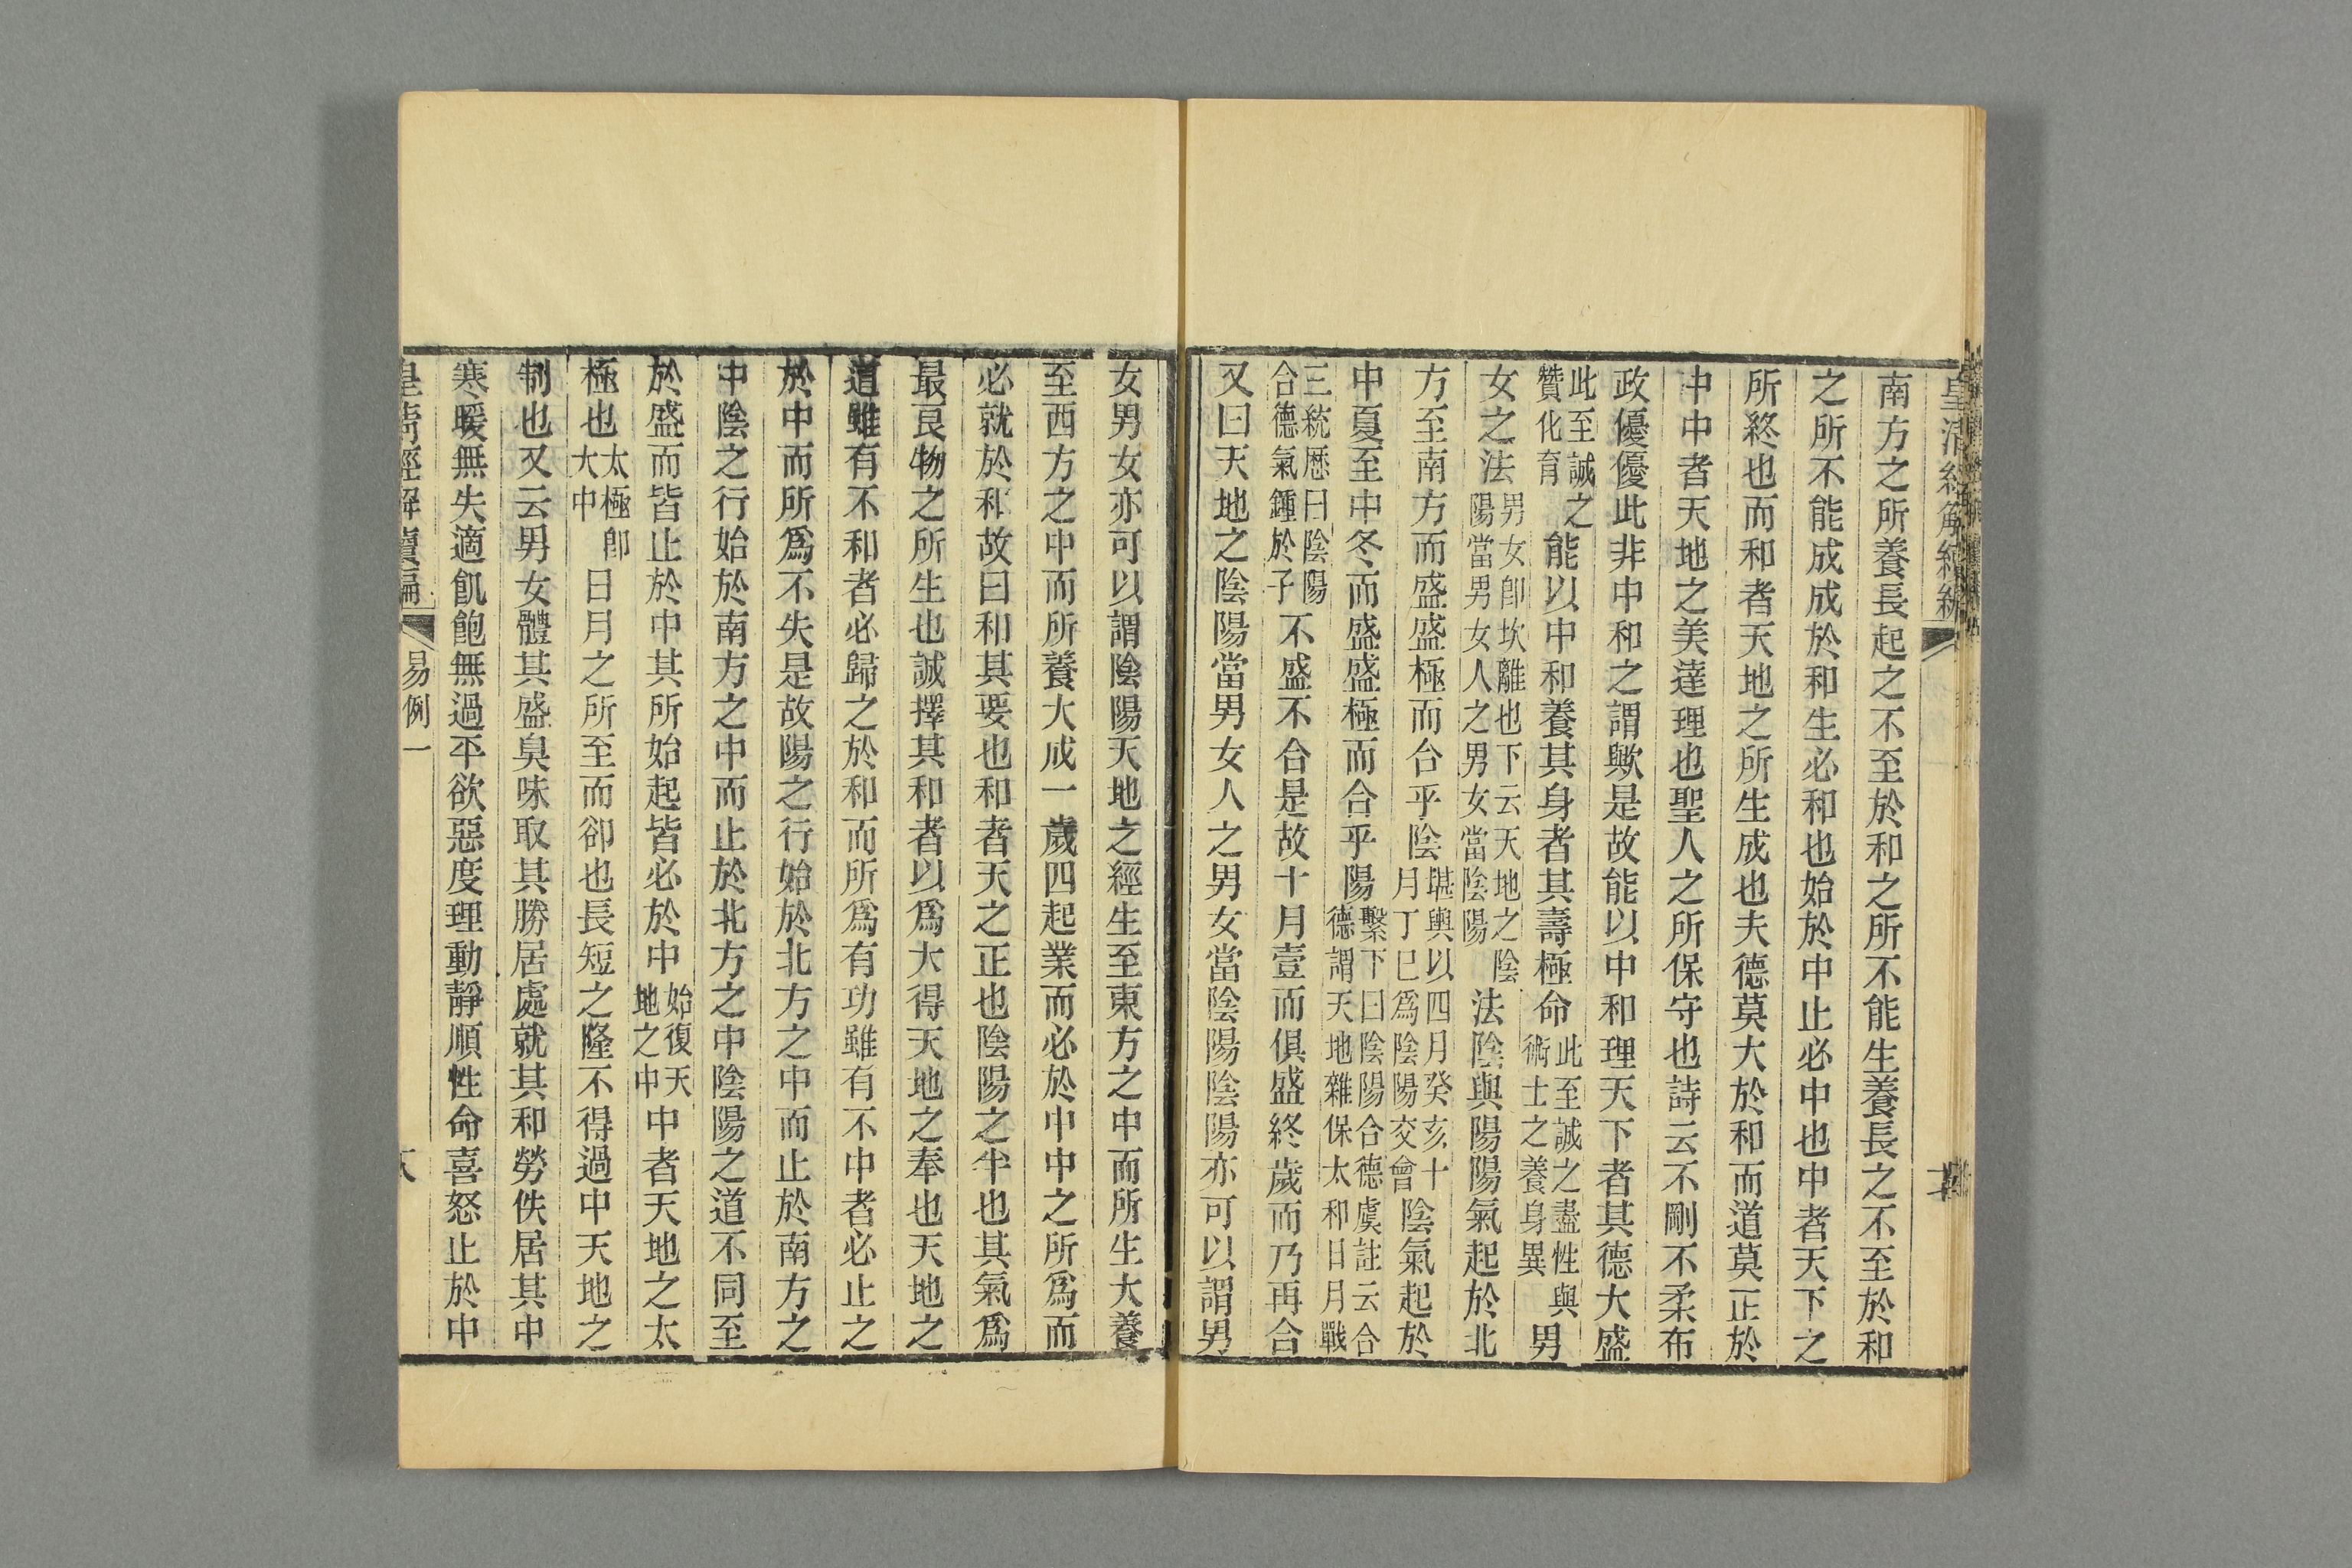 南方之所養長起之不至於和之所不能生養長之不至於和
之所不能成成於和生必和也始於中止必中也中者天下之
所終也而和者天地之所生成也夫德莫大於和而道莫正於
中中者天地之美達理也聖人之所保守也詩云不剛不柔布
政優優此非中和之謂歟是故能以中和理天下者其德大盛
此至誠之
贊化育
能以中和養其身者其壽極命
此至誠之盡性與
術士之養身異
男
女之法
男女卽坎離也下云天地之陰
陽當男女人之男女當陰陽
法陰與陽陽氣起於北
方至南方而盛盛極而合乎陰
堪輿以四月癸亥十
月丁巳爲陰陽交會
陰氣起於
中夏至中冬而盛盛極而合乎陽
繫下曰陰陽合德虞註云合
德謂天地雜保太和日月戰
三統厯曰陰陽
合德氣鍾於子
不盛不合是故十月壹而俱盛終歲而乃再合
又曰天地之陰陽當男女人之男女當陰陽陰陽亦可以謂男
女男女亦可以謂陰陽天地之經生至東方之中而所生大養
至西方之中而所養大成一歲四起業而必於中中之所爲而
必就於和故曰和其要也和者天之正也陰陽之平也其氣爲
最良物之所生也誠擇其和者以爲大得天地之奉也天地之
道雖有不和者必歸之於和而所爲有功雖有不中者必止之
於中而所爲不失是故陽之行始於北方之中而止於南方之
中陰之行始於南方之中而止於北方之中陰陽之道不同至
於盛而皆止於中其所始起皆必於中
始復天
地之中
中者天地之太
極也
太極卽
大中
日月之所至而卻也長短之隆不得過中天地之
制也又云男女體其盛臭味取其勝居處就其和勞佚居其中
寒暖無失適飢飽無過平欲惡度理動靜順性命喜怒止於中
皇清經解續編
易例一